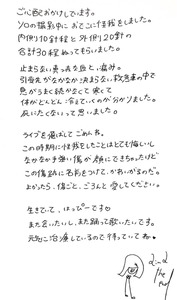 ご心配おかけしています。
ソロの撮影中におでこに怪我をしました。
内側10針程と外側20針の
合計30程ぬってもらいました。
止まらない真っ赤な血と、痛み。
引受先がなかなか決まらない救急車の中で
息がうまく続かなくて寒くて
体がどんどん冷えていくのが分かりました。
死にたくないって思いました。
ライブを飛ばしてごめんね。
この時期に怪我をしたことはとても悔しいし
なかなか手強い傷が顔にできちゃったけど
この傷跡に名前をつけて、かわいがるのだ。
よかったら、傷ごと、ごろんと愛してください。
生きてて、はっぴーです
また会いたいし、また踊って歌いたいです。
元気に治療しているので待っていてね。